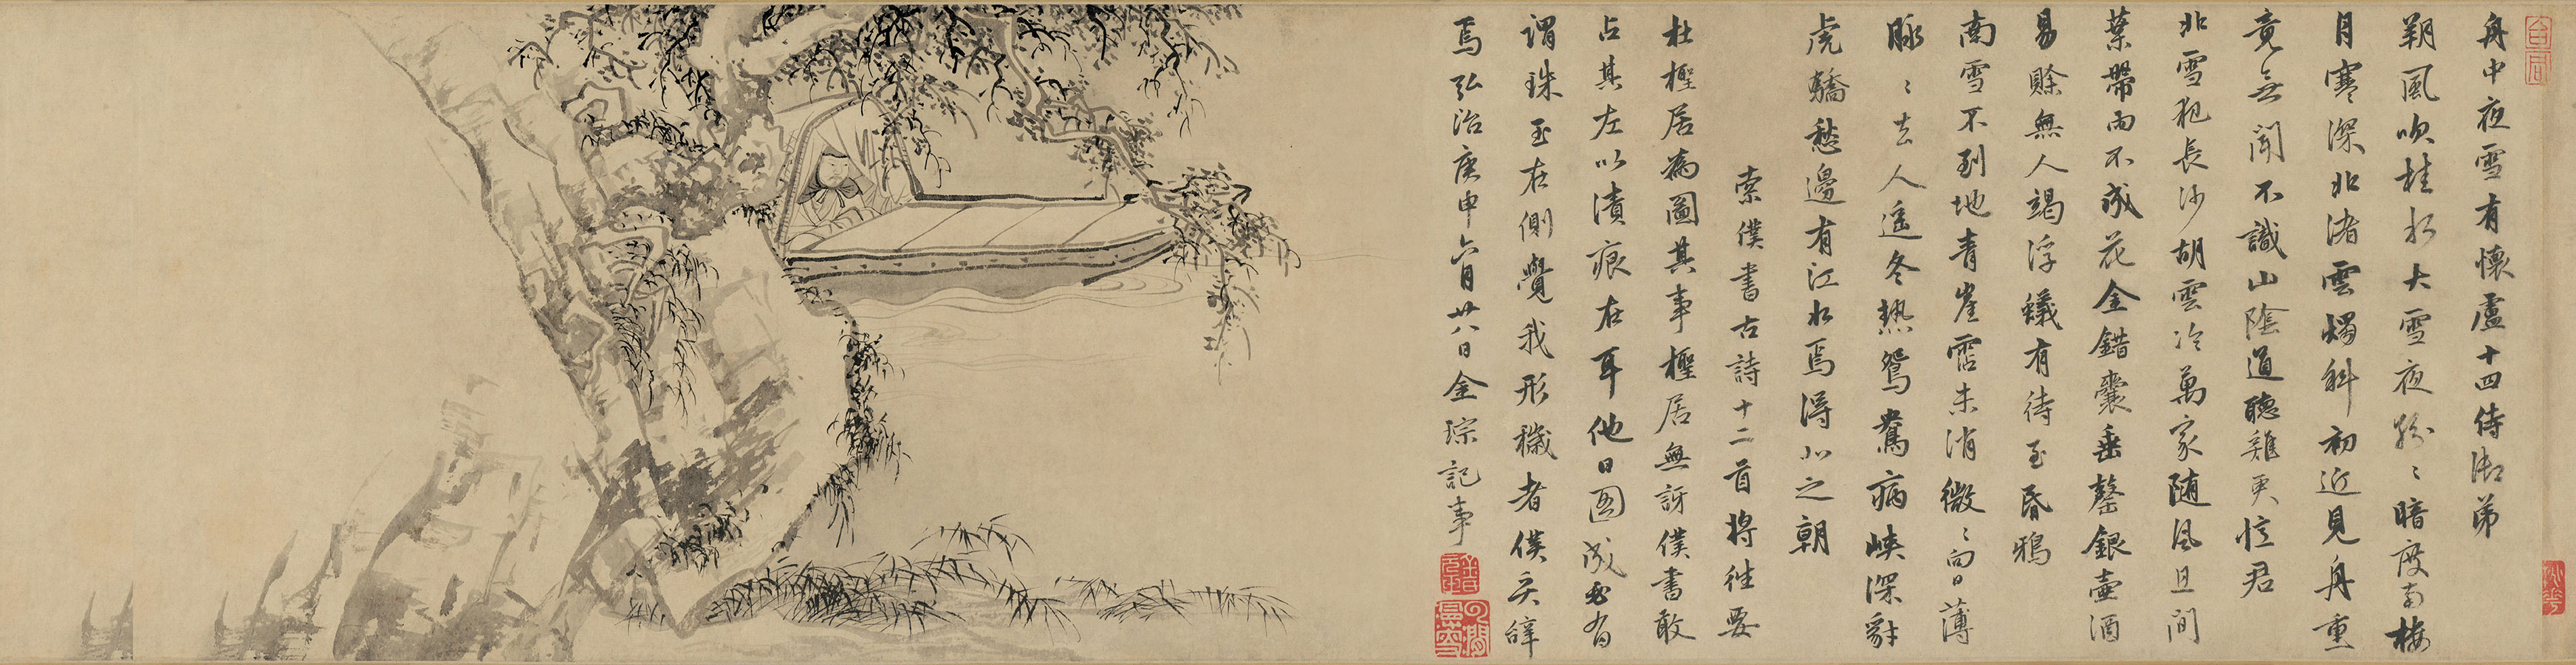 舟中夜雪有懷盧十四侍御弟
朔風吹桂水大雪夜紛〻暗度南樓
月寒深北渚雲燭斜初近見舟重
竟無聞不識山陰道聽雞更憶君
北雪犯長沙胡雲冷萬家隨風且間
葉帶雨不成花金錯囊垂罄銀壺酒
易賒無人竭浮蟻有待至昏鴉
南雪不到地青崖霑未消微〻向日薄
脉〻去人遙冬熱鴛鴦病峽深豺
虎驕愁邊有江水焉得北之朝
索僕書古詩十二首將徃要
杜檉居為圖其事檉居無訝僕書敢
占其左以漬痕在耳他日圖成必有
謂珠玉在側覺我形穢者僕奚辭
焉弘治庚申六月廿八日金琮記事